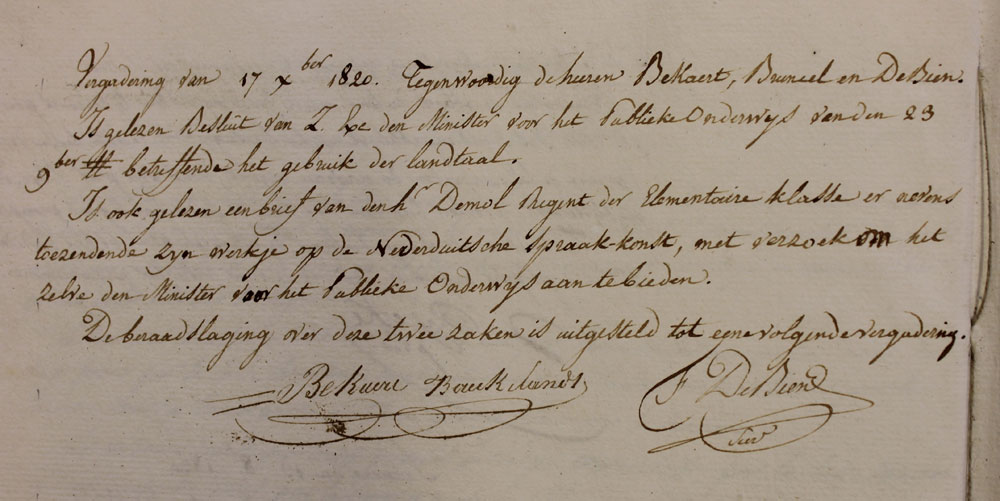 Vergadering van 17 xber 1820. Tegenwoordig de heeren BeKaert, Bruneel en DeBien.
Is gelezen Besluit van Z Exc den Minister voor het Publieke Onderwys van den 23
9ber betreffende het gebruik der landtaal.
Is ook gelezen een brief van den hr Demol Regent der Elementaire klasse er nevens
toezendende zyn werkje op de Nederduitsche spraak-konst, met verzoek om het
zelve den Minister voor het Publieke Onderwys aan te bieden.
De beraadslaging over deze twee zaken is uitgesteld tot eene volgende vergadering.
BeKaert Baeckelandt F DeBien
Secr